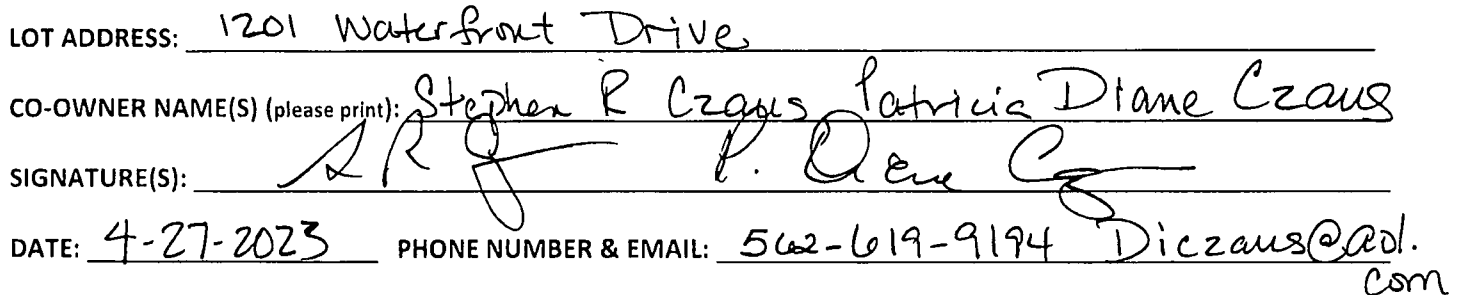 LOT ADDRESS: 1201 Waterfront Drive
CO-OWNER NAME(S) (please print): Stephen R Czaus Patricia Diane Czaus
SIGNATURE(S): P. Diane
DATE: 4-27-2023 PHONE NUMBER & EMAIL: 562-619-9194 Diczaus@aol.
com